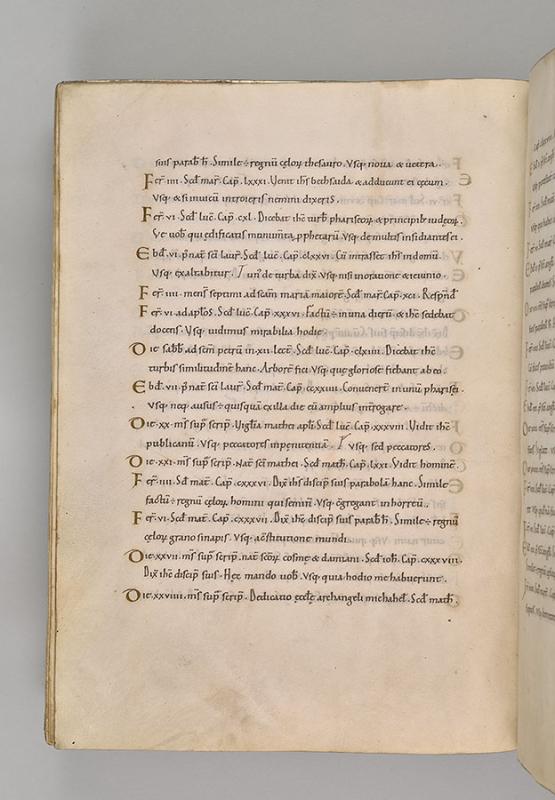 suis parab̄ h̄. Simile ÷ regnū cęloꝝ thesauro. Vsq; noua & uetera.
Fer̄. iiii. Scđ mar̄. Cap̄. lxxxi. Uenit ih̄s bethsaida & adducunt ei cęcum.
Vsq; & si in uicū introieris nemini dixeris.
Fer̄. vi. Scđ luc̄. Cap̄. cxl. Dicebat ih̄c turb̄ phariseoꝝ & principib; iudęoꝝ.
Ve uob̄ qui ędificatis munumtā pphetarū Vsq; de multis insidiantes ei.
Ebđ. vi. p̄ nat̄ sc̄i laur̄. Scđ luc̄. Cap̄. clxxvi. Cū intrasset ih̄s in domū
Vsq; exaltabitur. un̄ de turba dix̄. Vsq; nisi in oratione & ieiunio.
Fer̄. iiii. mens̄ septimi ad sc̄am mariā maiorē. Scđ mar̄. Cap̄. xci. Respn̄đ
Fer̄. vi. ad aplōs. Scđ luc̄. Cap̄. xxxvi. Factū ÷ in una dierū & ih̄c sedebat
docens. Vsq; uidimus mirabilia hodie.
Die sab̄b ad sc̄m petrū in. xii. lect̄. Scđ luc̄. Cap̄. clxiii. Dicebat ih̄c
turbis similitudinē hanc. Arborē fici Vsq; quę gloriose fiebant ab eo.
Ebđ. vii. p̄ nat̄ sc̄i laur̄. Scđ mat̄. Cap̄. ccxxiii. Conuenert̄ in unū pharisęi.
Vsq; neq; ausus ÷ quisquā ex illa die eū amplius int̄rogare.
Die. xx. m̄s sup̄ scrip̄. Uigilia mathei apl̄i. Scđ luc̄. Cap̄. xxxviii. Vidit ih̄c
publicanū Vsq; peccatores in pęnitentiā. Vsq; sed peccatores.
Die. xxi. m̄s sup̄ scrip̄. Nat̄ sc̄i mathei. Scđ math̄. Cap̄. lxxi. Vidit hominē.
Fer̄. iiii. Sđ mat̄. Cap̄. cxxxvi. Dix̄ ih̄s discip̄ suis parabolā hanc. Simile
factū ÷ regnū cęloꝝ homini qui semiñ. Vsq; c̄gregant in horreū.
Fer̄. vi. Scđ mat̄. Cap̄. cxxxvii. Dix̄ ih̄c discip̄ suis parab̄ h̄. Simile ÷ regnū
cęloꝝ grano sinapis. Vsq; a c̄stitutione mundi.
Die. xxvii. m̄s sup̄ scrip̄. nat̄ sc̄oꝝ cosmę & damiani. Scđ ioh̄. Cap̄. cxxxviii.
Dix̄ ih̄c discip̄ suis. Hęc mando uob̄. Vsq; quia hodio me habuerunt.
Die. xxviiii. m̄s sup̄ scrip̄. Dedicatio ęcclę archangeli michahel. Scđ math̄.